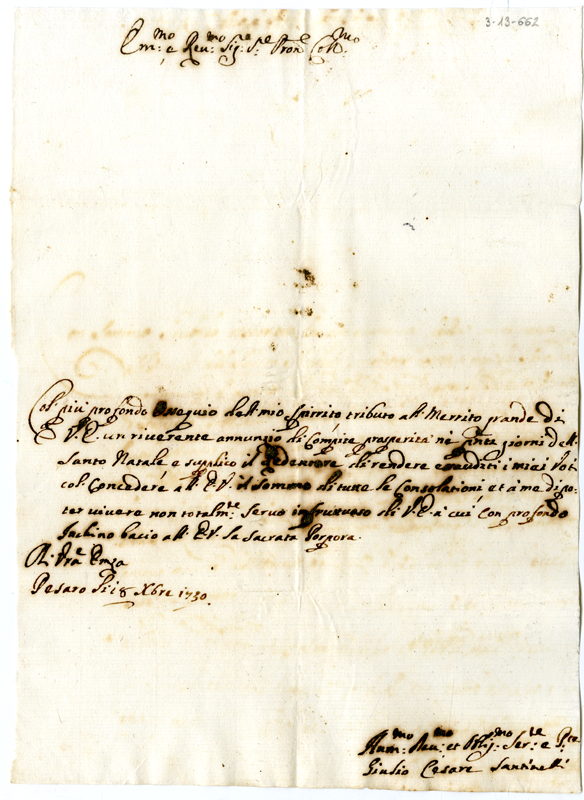 3-13-662
Em:mo e Reu:mo Sig:re S:re Pron:e Coll:mo
Col' più profondo Ossequio del mio spirrito tributo all' Merrito grande di
V.E. un riverente annunzio di Compite prosperità nè pnti giorni dell
Santo Natale e supplico il Redentore di rendere esauditi i miei Voti
col' Concedere all' E.V. il sommo di tutte le Consolationi, et a me di po-
ter vivere non totalm:te servo infruttuoso di V.E. à cui con profondo
Inchino bacio all' E.V. la Sacrata Porpora.
Di Vra Emza
Pesaro li 8 Xbre 1730.
Hum:mo Reu:mo et Obblig:mo Ser:re e
Giulio Cesare Santinelli